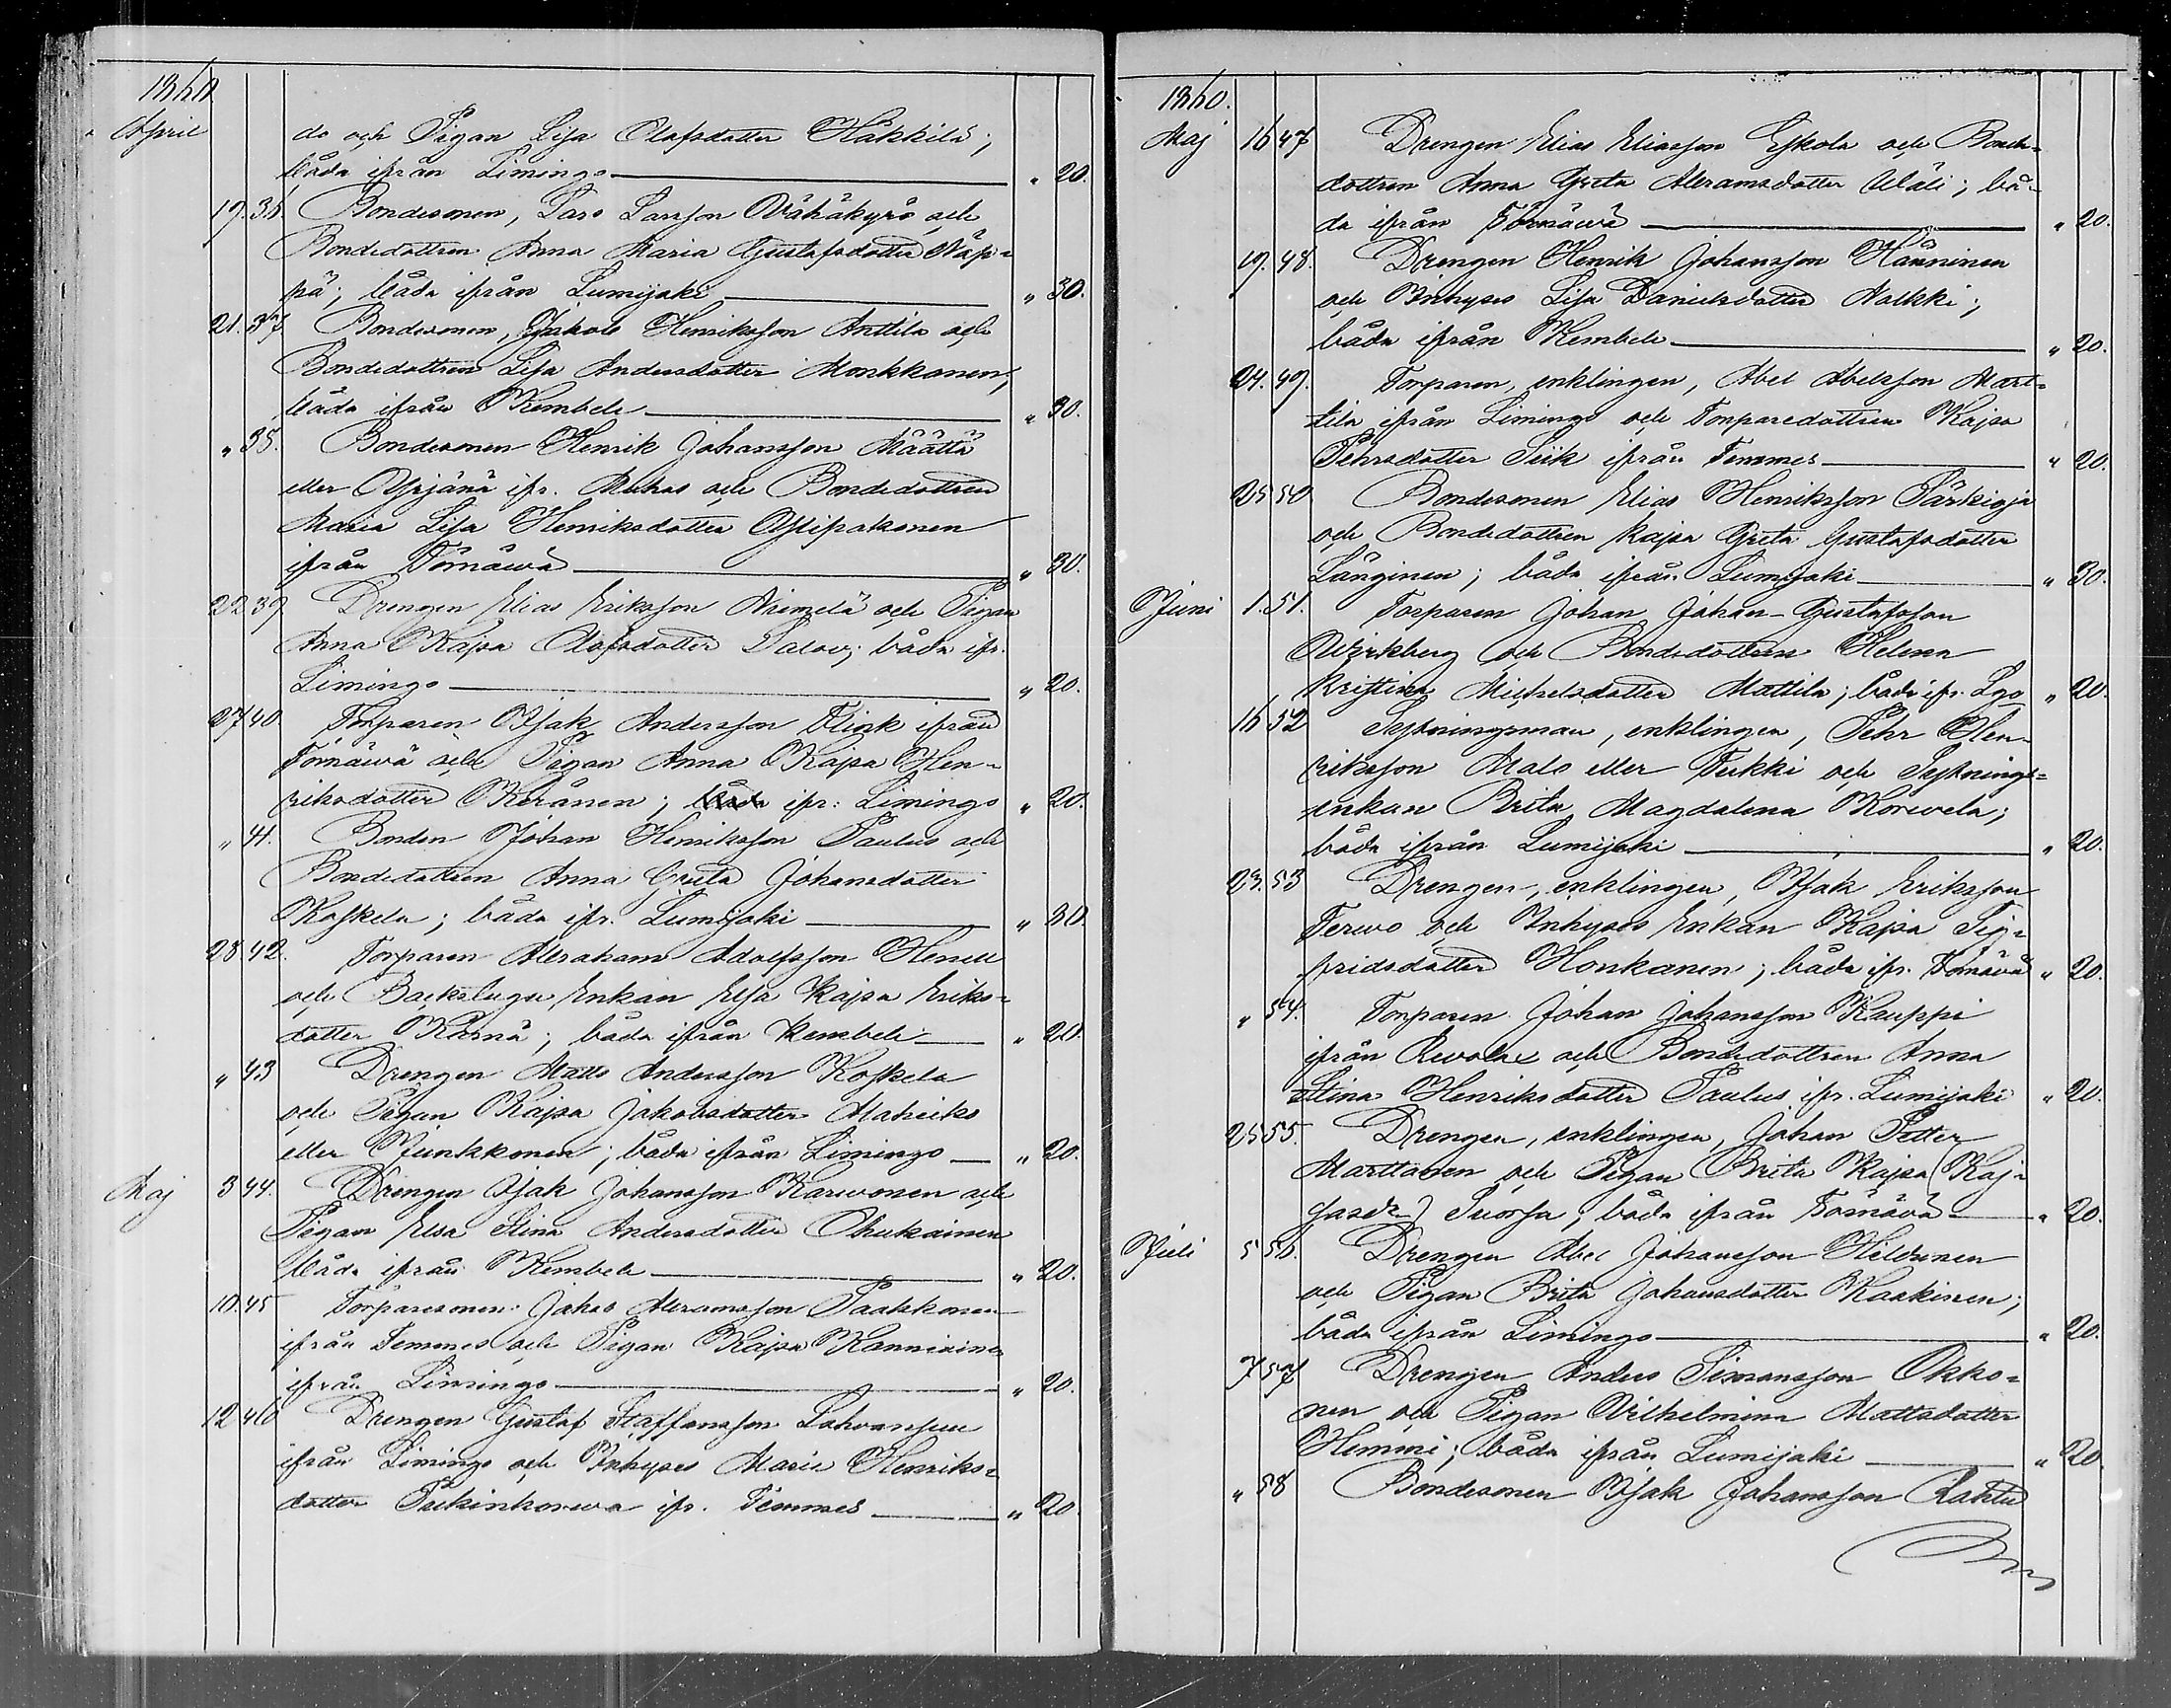 1860
April do och Pigan Lisa Olafsdotter Häkkilä;
båda ifrån Limingo — „ 20.
19. 36. Bondesonen, Lars Larsson Wähäkyrö och
Bondedottren Anna Maria Gustafsdotter Näp-
pä; båda ifrån Lumijoki — „ 30.
21. 37. Bondesonen, Jakob Henriksson Anttila och
Bondedottren Lisa Andersdotter Monkkanen;
båda ifrån Kembele — „ 30.
„ 38. Bondesonen Henrik Johansson Määttä
eller Yrjänä ifr. Muhos och Bondedottren
Maria Lisa Henriksdotter Ylipakonen
ifrån Törnäwä — „ 30.
22 39 Drengen Elias Eriksson Niemelä och Pigan
Anna Kajsa Olofsdotter Salov; båda ifr.
Limingo — „ 20.
27 40 Torparen Isak Andersson Flink ifrån
Törnäwä och Pigan Anna Kajsa Hen-
riksdotter Keränen; båda ifr. Limingo „ 20.
„ 41. Bonden Johan Henriksson Paulus och
Bondedottren Anna Greta Johansdotter
Koskela; båda ifr. Lumijoki — „ 30.
28 42. Torparen Abraham Adolfsson Henell
och Backstugu Enkan Elsa Kajsa Eriks-
dotter Kärnä; båda ifrån Kembele — „ 20.
„ 43 Drengen Matts Andersson Koskela
och Pigan Kajsa Jakobsdotter Matteiks
eller Junkkonen; båda ifrån Limingo — „ 20.
Maj 3 44. Drengen Isak Johansson Karwonen och
Pigan Elsa Stina Andersdotter Ohukainen
båda ifrån Kembele — „ 20.
10. 45 Torparesonen Jakob Abramsson Paakkonen
ifrån Temmes och Pigan Kajsa Kanniainen
ifrån Limingo — „ 20.
12 46 Drengen Gustaf Staffansson Lohvansuu
ifrån Limingo och Inhyses Maria Henriks-
dotter Pitkänkorwa ifr. Temmes — „ 20.
1860.
Maj 16 47 Drengen Elias Eliasson Eskola och Bonde-
dottren Anna Greta Abramsdotter Wäli; bå-
da ifrån Törnäwä — „ 20.
19. 48. Drengen Henrik Johansson Hänninen
och Inhyses Lisa Danielsdotter Nalkki;
båda ifrån Kembele — „ 20.
24. 49. Torparen, enklingen, Abel Abelsson Mart-
tila ifrån Limingo och Torparedottren Kajsa
Pehrsdotter Siik ifrån Temmes — „ 20.
25 50 Bondesonen Elias Henriksson Särkioja
och Bondedottren Kajsa Greta Gustafsdotter
Länginen; båda ifrån Lumijoki — „ 30.
Juni 1. 51. Torparen Johan Johan-Gustafsson
Wirkberg och Bondedottren Helena
Kristina Michelsdotter Mattila; båda ifr. Lgo „ 20.
16 52 Sytningsman, enklingen, Pehr Hen-
riksson Malo eller Tukki och Sytnings-
enkan Brita Magdalena Korwela;
båda ifrån Lumijoki — „ 20.
23. 53 Drengen, enklingen, Isak Eriksson
Terwo och Inhyses Enkan Kajsa Sig-
fridsdotter Honkanen; båda ifr. Törnävä „ 20.
„ 54. Torparen Johan Johansson Kauppi
ifrån Revolax och Bondedottren Anna
Stina Henriksdotter Paulus ifr. Lumijoki „ 20.
25 55. Drengen, enklingen, Johan Petter
Marttanen och Pigan Brita Kajsa (Kaj-
sasdr) Suorsa; båda ifrån Törnävä — „ 20.
Juli 5 56. Drengen Abel Johansson Heldunen
och Pigan Brita Johansdotter Kaakinen;
båda ifrån Limingo — „ 20.
7 57 Drengen Anders Simonsson Okko-
nen och Pigan Wilhelmina Mattsdotter
Hemmi; båda ifrån Lumijoki — „ 20.
„ 58 Bondesonen Isak Johansson Rahtu